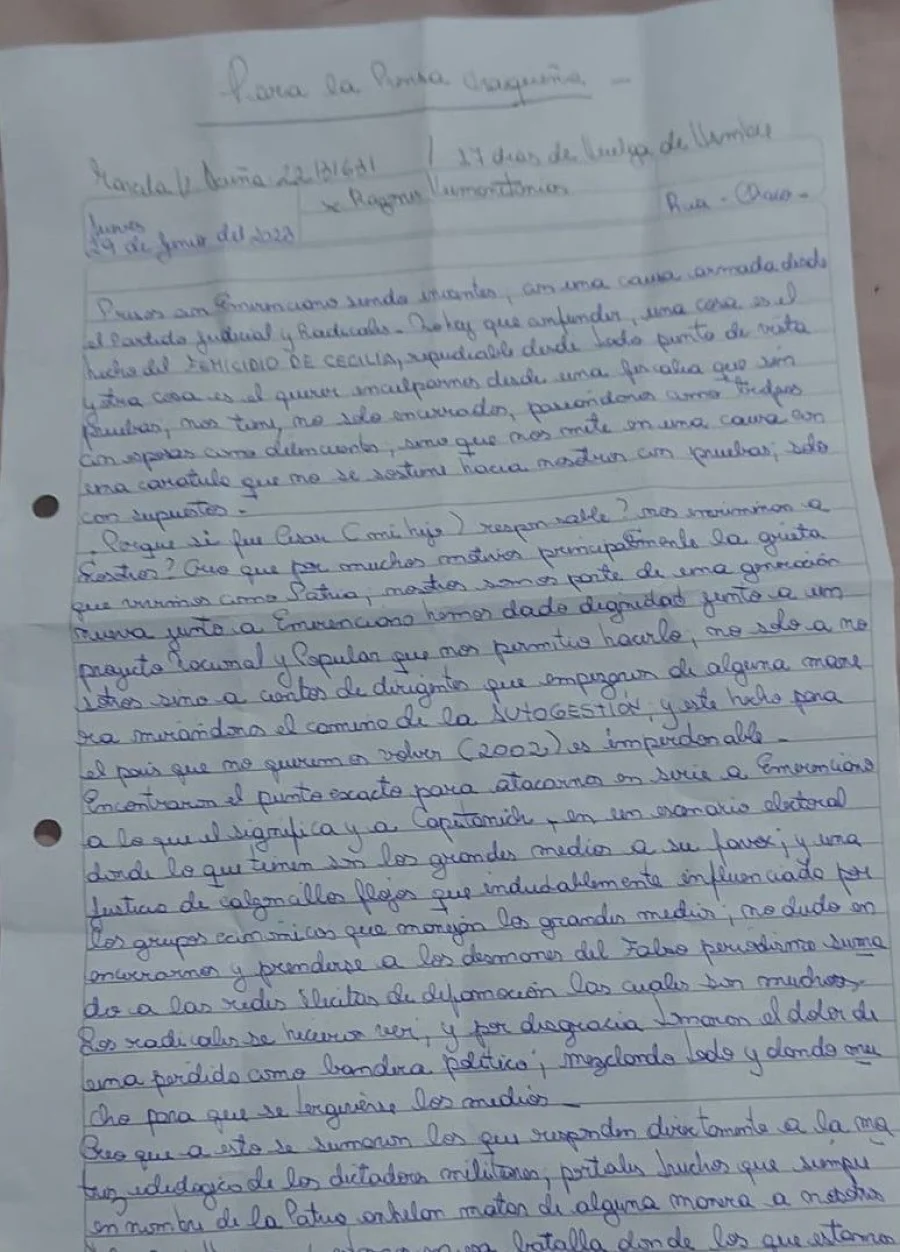 Para la Prensa Chaqueña -
Marcela V. Acuña 22.131.631 / 17 dias de huelga de Hambre
x Razones Humanitarias
Rcia - Chaco -
Jueves
29 de Junio del 2023
Presos con Emerenciano siendo inocentes, en una causa armada desde
el Partido Judicial y Radicales - No hay que confundir, una cosa es el
hecho del FEMICIDIO DE CECILIA, repudiable desde todo punto de vista
y otra cosa es el querer inculparnos desde una fiscalia que sin
pruebas, nos tiene, no solo encerrados, paseandonos como trofeos
con esposas como delincuentes, sino que nos mete en una causa con
una caratula que no se sostiene hacia nosotros con pruebas, solo
con supuestos.
¿Porque si fue Cesar (mi hijo) responsable? nos incriminan a
nosotros? Creo que por muchos motivos principalmente la grieta
que vivimos como Patria, nosotros somos parte de una generación
nueva junto a Emerenciano hemos dado dignidad junto a un
proyecto Nacional y Popular que nos permitio hacerlo, no solo a no
sotros sino a cientos de dirigentes que empezaron de alguna mane
ra mirandonos el camino de la AUTOGESTIÓN, y este hecho para
el pais que no queremos volver (2002) es imperdonable -
Encontraron el punto exacto para atacarnos en serie a Emerenciano
a lo que el significa y a Capitanich, en un escenario electoral
donde lo que tienen son los grandes medios a su favor; y una
Justicia de calzoncillos flojos que indudablemente influenciado por
los grupos economicos que manejan los grandes medios, no dudo en
encerrarnos y prenderse a los desmanes del Falso periodismo suma
do a las redes ilicitas de difamación las cuales son muchas,
Los radicales se hicieron ver, y por desgracia tomaron el dolor de
una perdida como bandera politica; mezclando todo y dando mu
cho para que se tergiverse los medios -
Creo que a esto se sumaron los que responden directamente a la ma
triz ideologica de los dictadores militares, portales truchos que siempre
en nombre de la Patria anhelan matar de alguna manera a nosotros
en esa batalla donde los que estamos